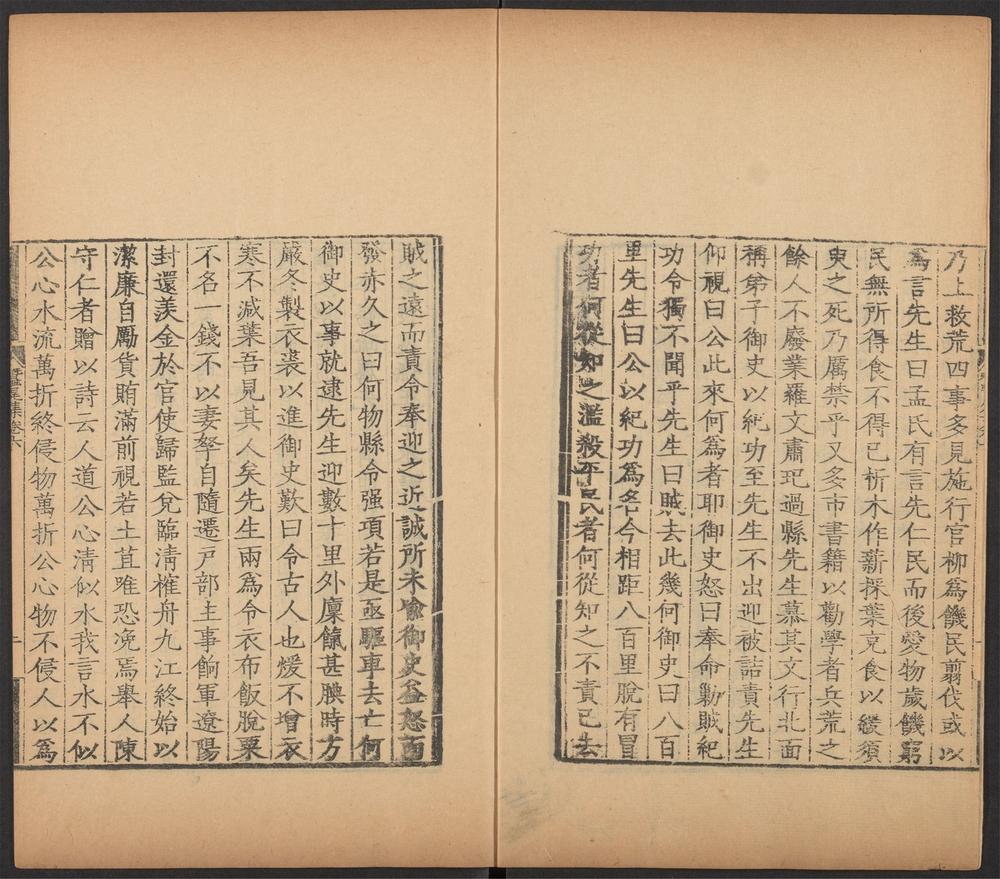 乃上救荒四事多見施行官柳爲饑民翦伐或以
爲言先生曰孟氏有言先仁民而後愛物歲饑窮
民無所得食不得已析木作薪採葉克食以緩須
臾之死乃厲禁乎又多市書籍以勸學者兵荒之
餘人不廢業羅文肅玘過縣先生慕其文行北面
稱弟子御史以紀功至先生不出迎被詰責先生
仰視曰公此來何爲者耶御史怒曰奉命勦賊紀
功令獨不聞乎先生曰賊去此幾何御史曰八百
里先生曰公以紀功爲名今相距八百里脫有冒
功者何從知之濫殺平民者何從知之不責已去
賊之遠而責令奉迎之近誠所未喻御史益怒面
發赤久之曰何物縣令强項若是亟驅車去亡何
御史以事就逮先生迎數十里外廩餼甚腆時方
嚴冬製衣裘以進御史歎曰令古人也煖不增衣
寒不減葉吾見其人矣先生兩爲令衣布飯脫粟
不名一錢不以妻孥自隨遷戸部主事餉軍遼陽
封還羨金於官使歸監兌臨清榷舟九江終始以
潔廉自勵貨賄滿前視若土苴唯恐浼焉舉人陳
守仁者贈以詩云人道公心清似水我言水不似
公心水流萬折終侵物萬折公心物不侵人以爲
集卷六